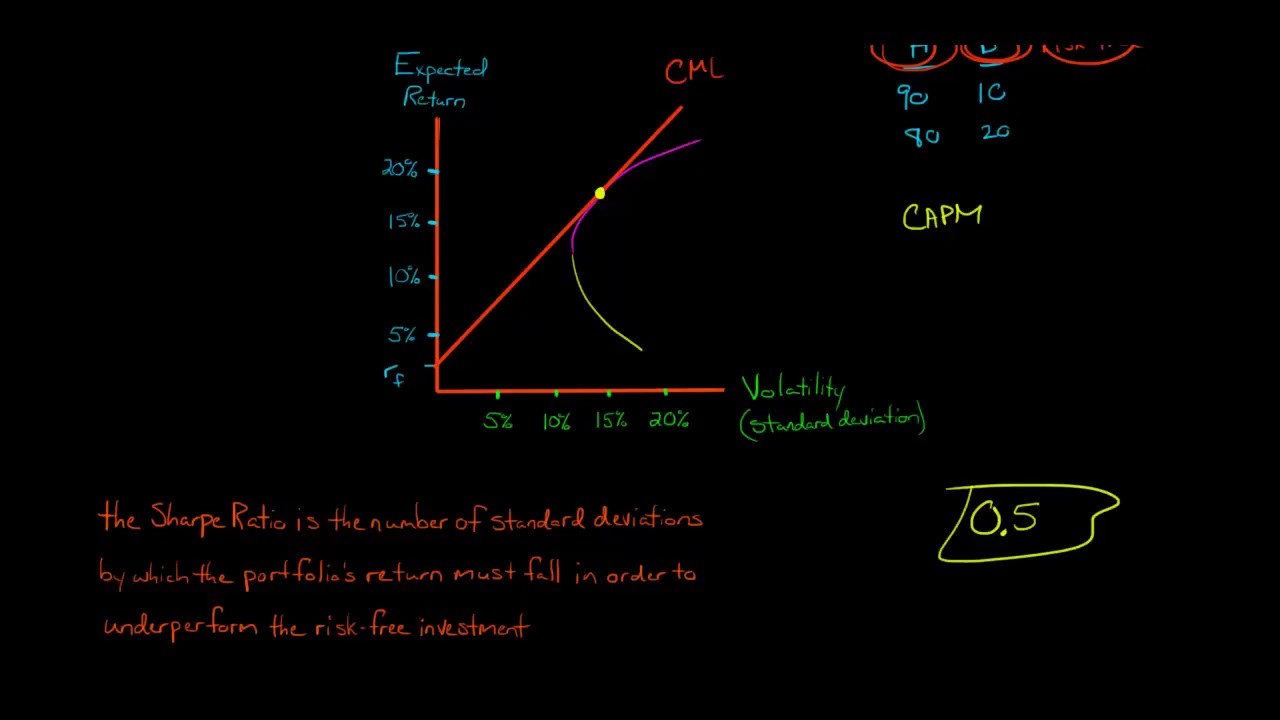 Expected
Return
CML
20%
15%
10%
5%
rf
5% 10% 15% 20%
Volatility
(standard deviation)
90 10
80 20
CAPM
0.5
the Sharpe Ratio is the number of standard deviations
by which the portfolio's return must fall in order to
underperform the risk-free investment